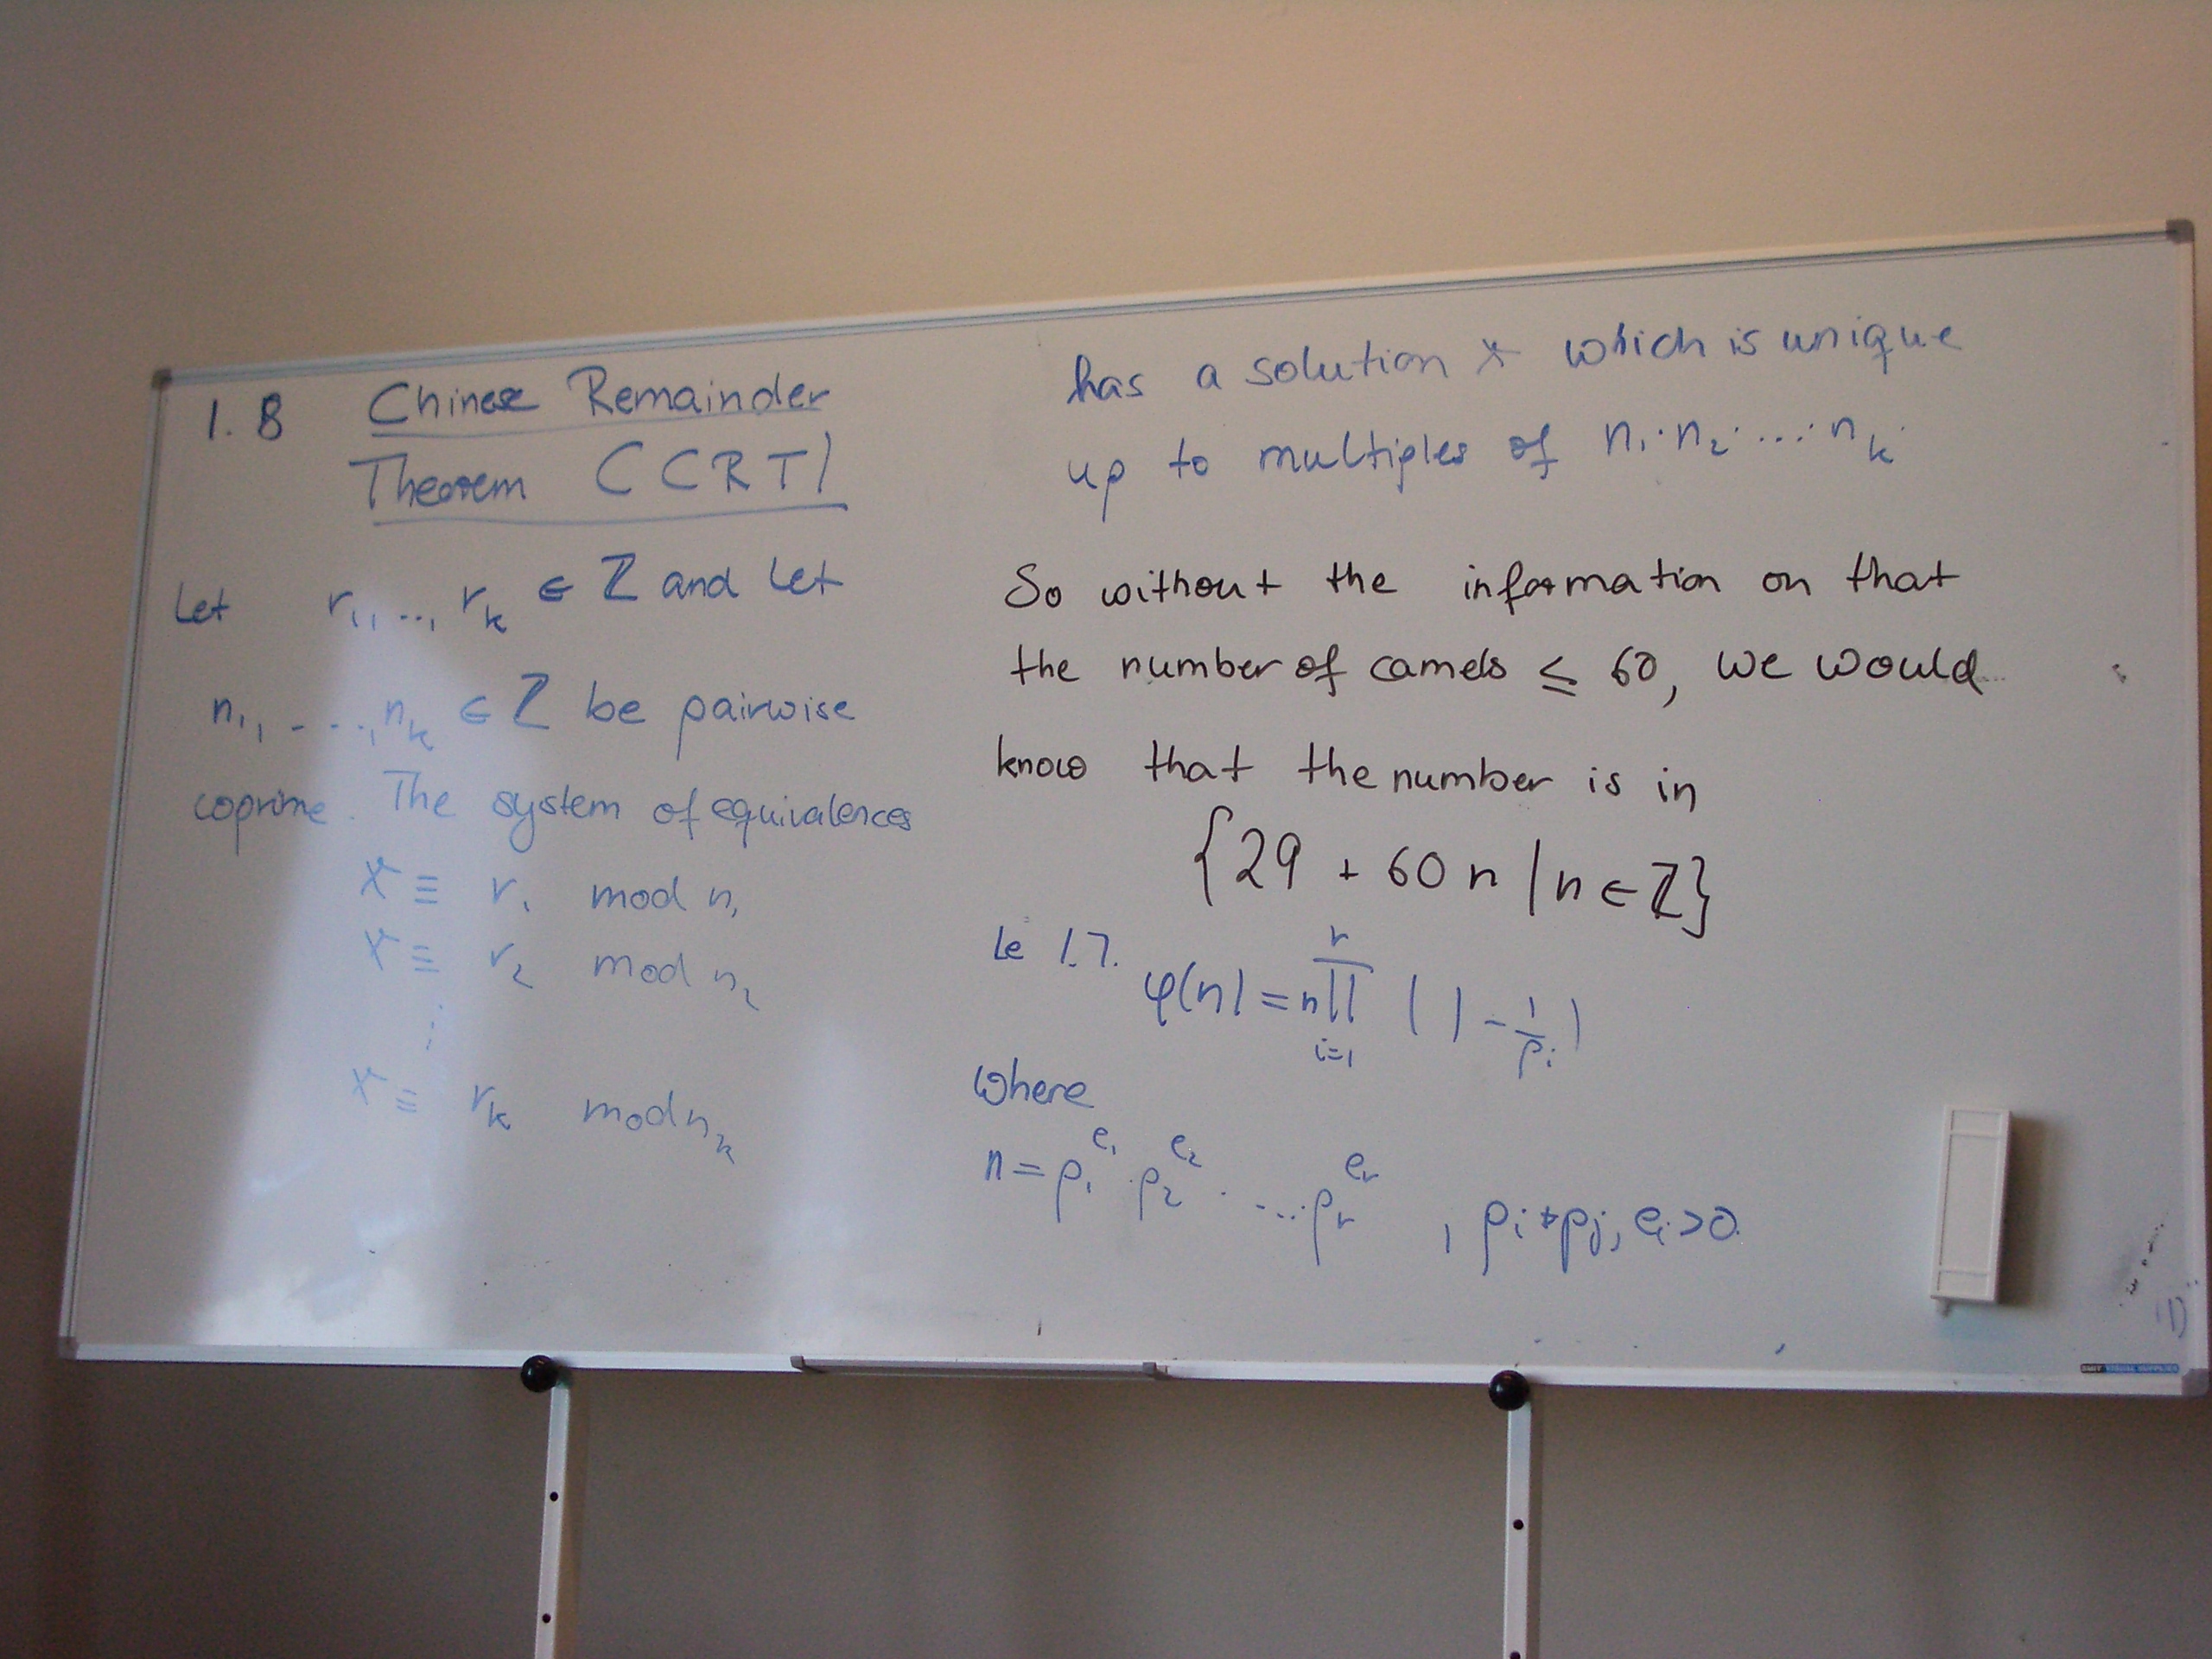 1.8 Chinese Remainder
Theorem (CRT)
Let r₁, ..., r_k ∈ ℤ and let
n₁, ..., n_k ∈ ℤ be pairwise
coprime. The system of equivalences
x ≡ r₁ mod n₁
x ≡ r₂ mod n₂
⋮
x ≡ r_k mod n_k
has a solution x which is unique
up to multiples of n₁·n₂·...·n_k.
So without the information on that
the number of camels ≤ 60, we would
know that the number is in
{29 + 60n | n ∈ ℤ}
Le 1.7. φ(n) = n ∏_{i=1}^{r} (1 - 1/p_i)
where
n = p₁^{e₁} · p₂^{e₂} · ... · p_r^{e_r}, p_i ≠ p_j, e_i > 0.